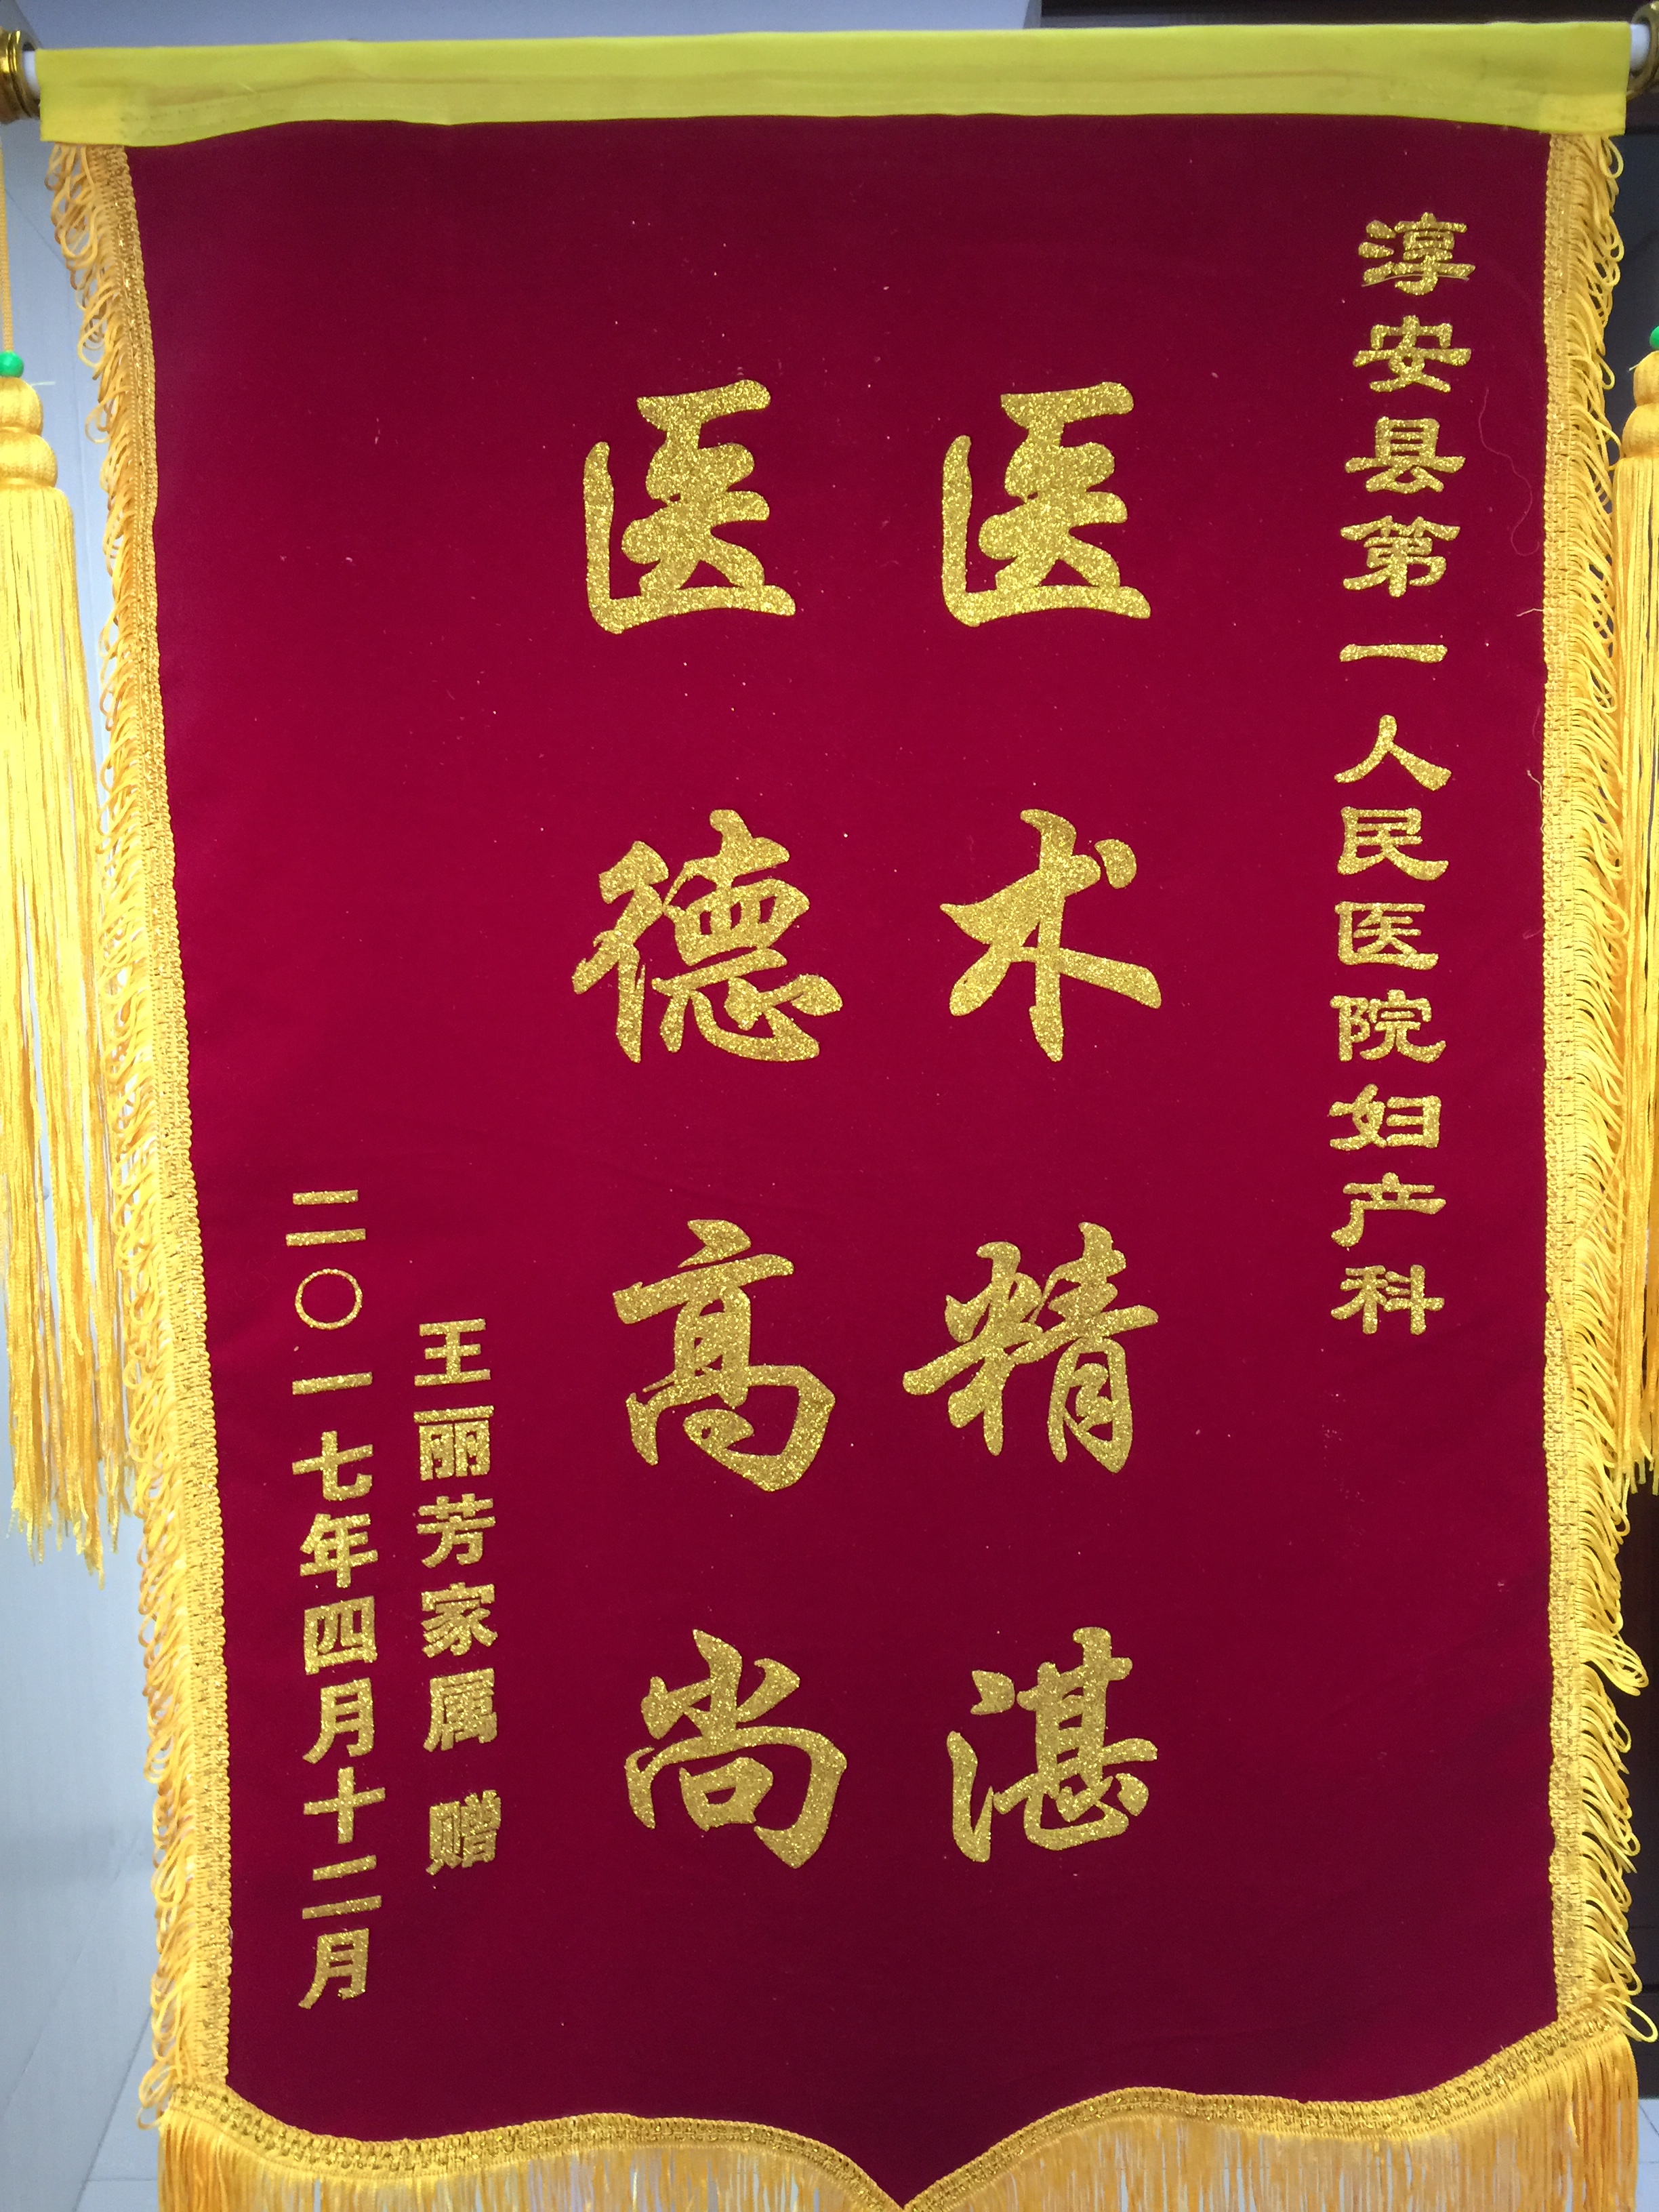 淳安县第一人民医院妇产科
医术精湛
医德高尚
王丽芳家属 赠
二〇一七年四月十二月